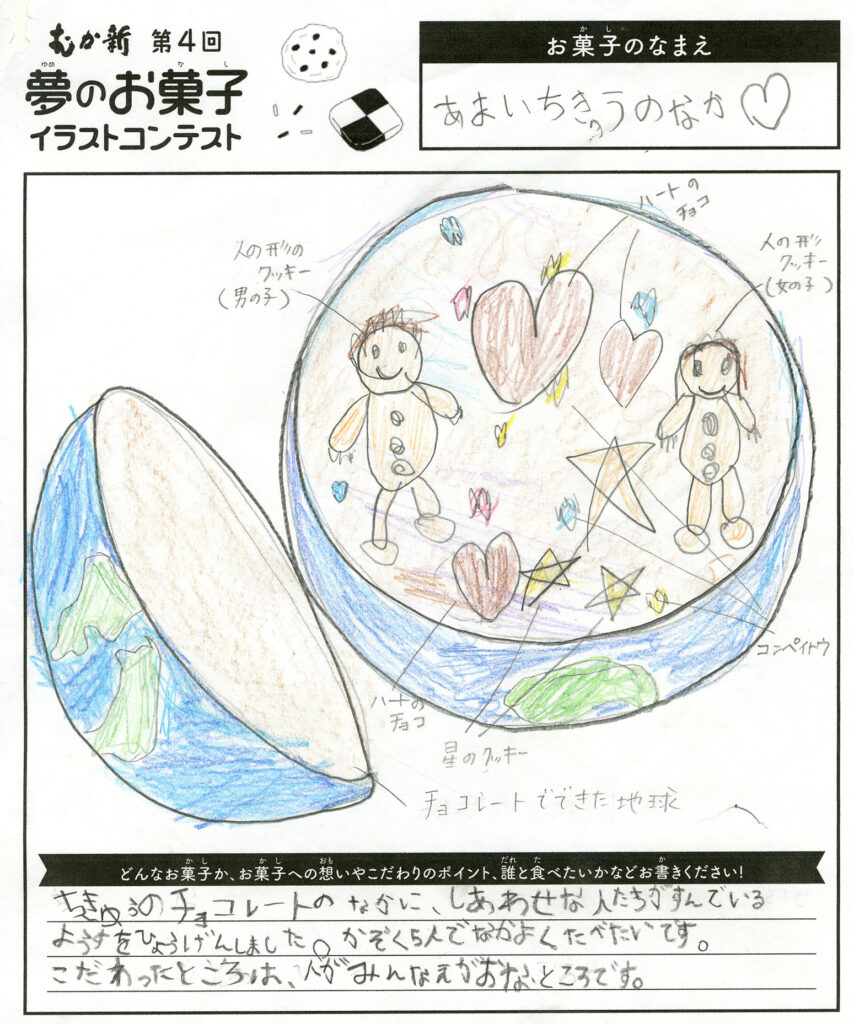 むか新 第4回
夢のお菓子
ゆめ か し
イラストコンテスト
お菓子のなまえ
か し
あまいちきゅうのなか♡
ハートの
チョコ
人の形の
クッキー
(男の子)
人の形
クッキー
(女の子)
コンペイトウ
ハートの
チョコ
星のクッキー
チョコレートでできた地球
どんなお菓子か、お菓子への想いやこだわりのポイント、誰と食べたいかなどお書きください!
か し か し おも だれ た か
ちきゅうのチョコレートのなかに、しあわせな人たちがすんでいる
ようすをひょうげんしました。かぞく5人でなかよくたべたいです。
こだわったところは、人がみんなえがおなところです。